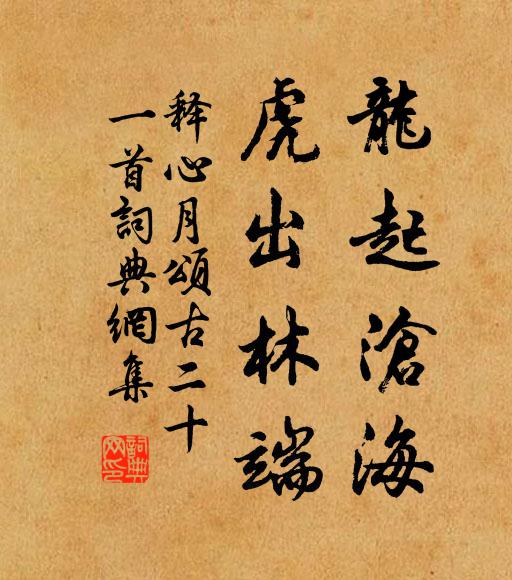 龍起滄海
虎出林端
释心月頌古二十
一首詞典網集
詞典网印